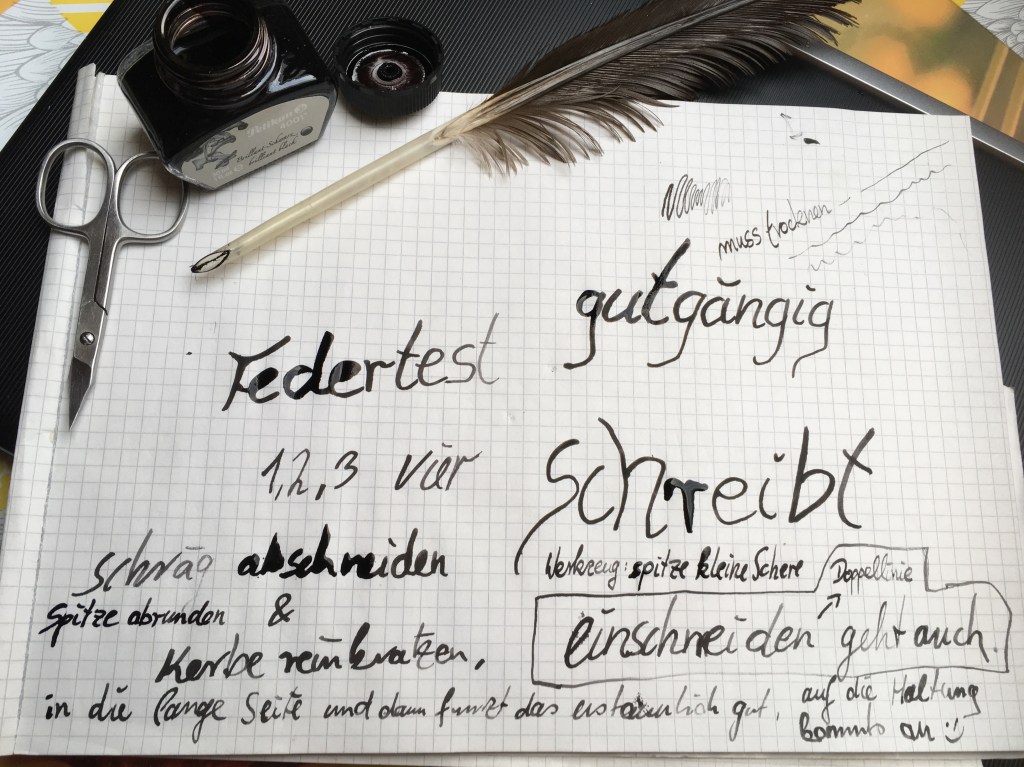 Pelikan
Brillant-Schwarz
brilliant black
muss trocknen
gutgängig
Federtest
1,2,3 vier
schreibt
schräg abschneiden
Werkzeug: spitze kleine Schere
Doppellinie
Spitze abrunden &
einschneiden geht auch.
Kerbe reinkratzen,
in die lange Seite und dann funzt das erstaunlich gut.
auf die Haltung
kommts an :)